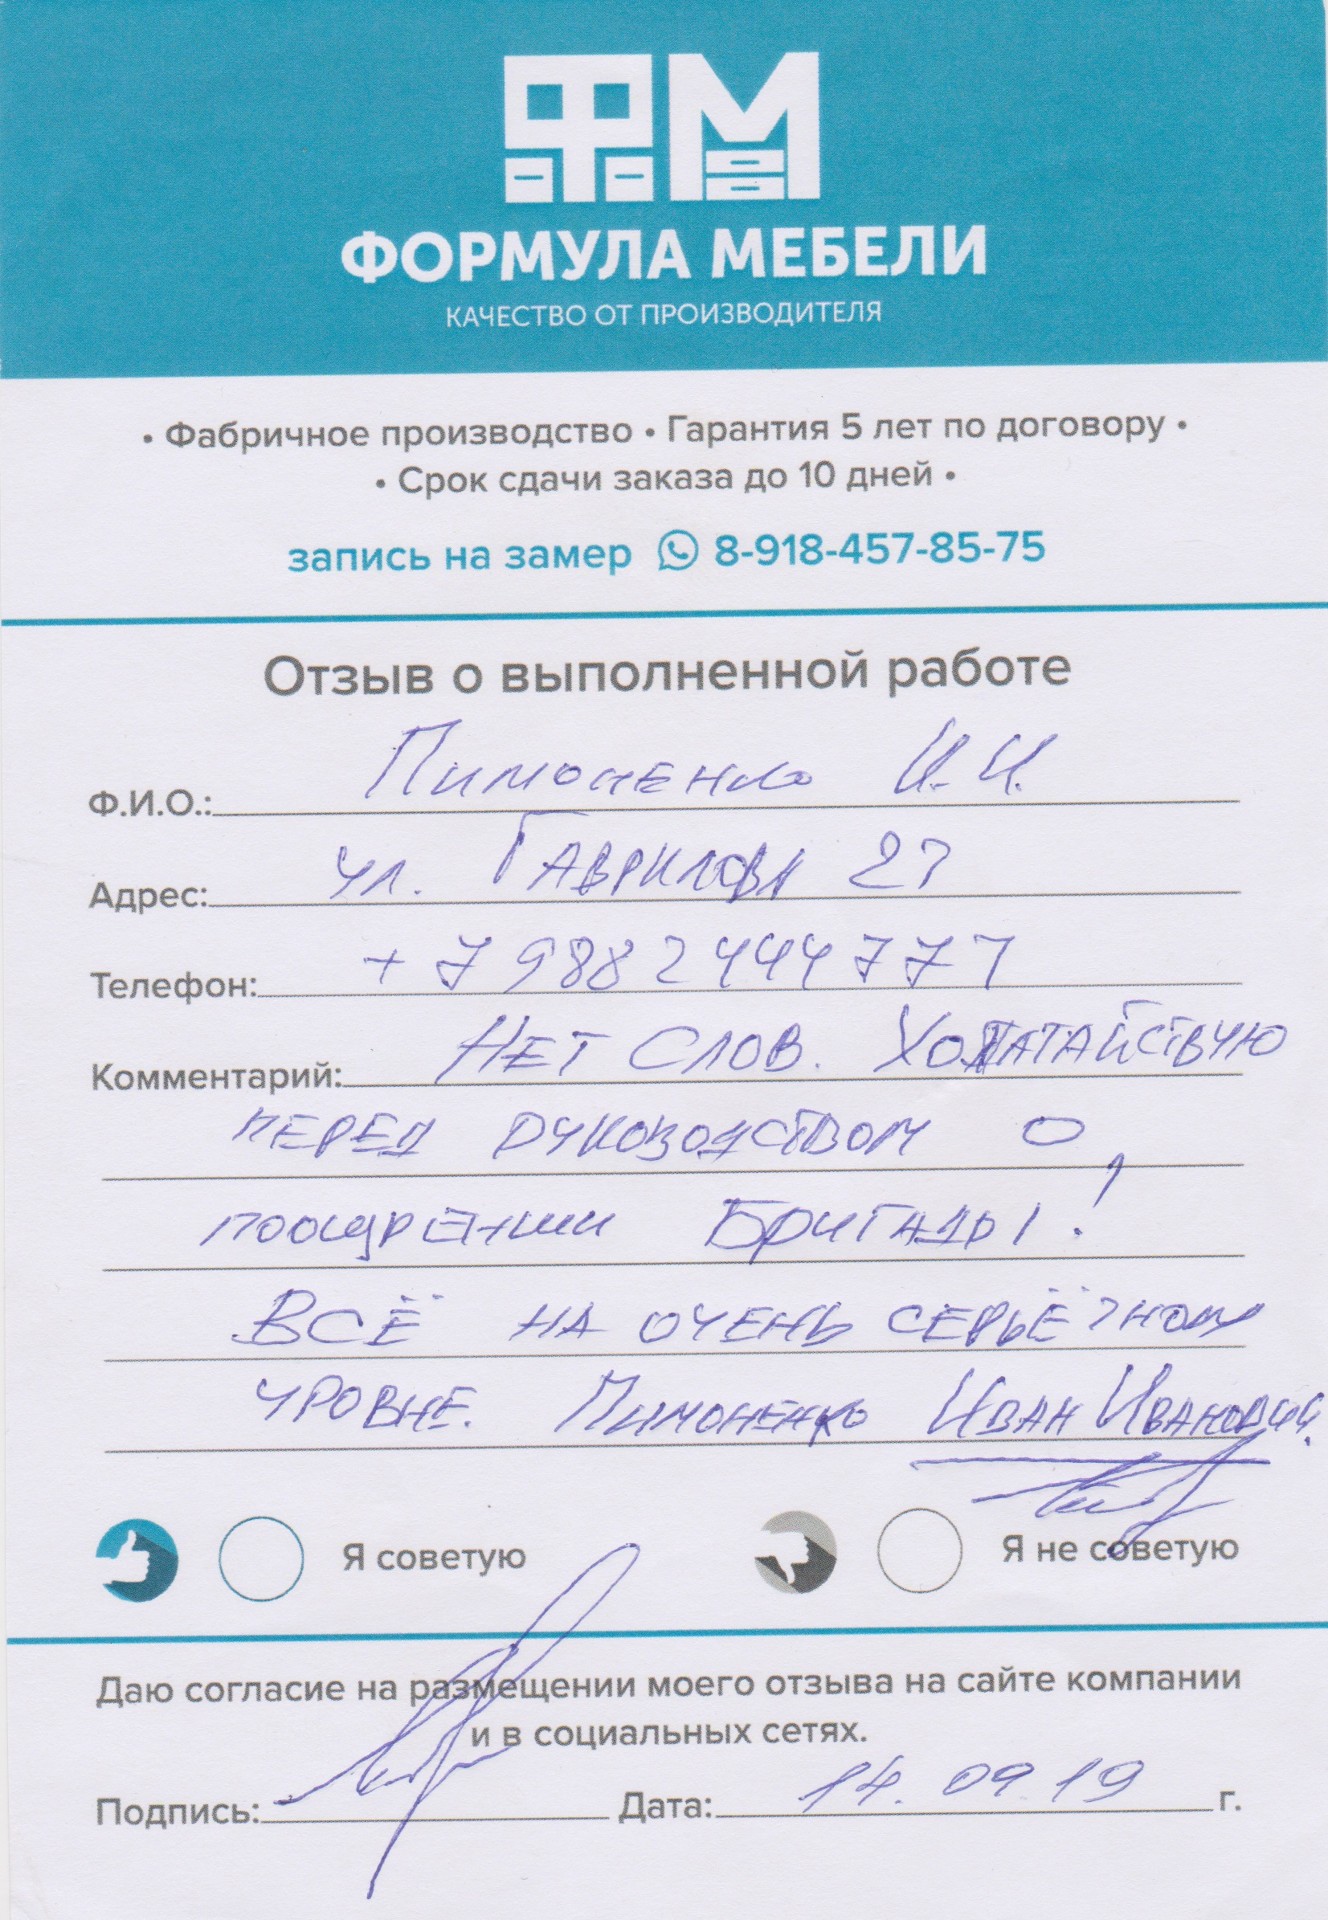 ФМ
ФОРМУЛА МЕБЕЛИ
КАЧЕСТВО ОТ ПРОИЗВОДИТЕЛЯ
• Фабричное производство • Гарантия 5 лет по договору •
• Срок сдачи заказа до 10 дней •
запись на замер 8-918-457-85-75
Отзыв о выполненной работе
Ф.И.О.: Пимоненко И.И.
Адрес: ул. Гаврилова 27
Телефон: +79882444777
Комментарий: Нет слов. Ходатайствую
перед руководством о
поощрении бригады!
Всё на очень серьёзном
уровне. Пимоненко Иван Иванович.
Я советую Я не советую
Даю согласие на размещении моего отзыва на сайте компании
и в социальных сетях.
Подпись: Дата: 14.09.19 г.